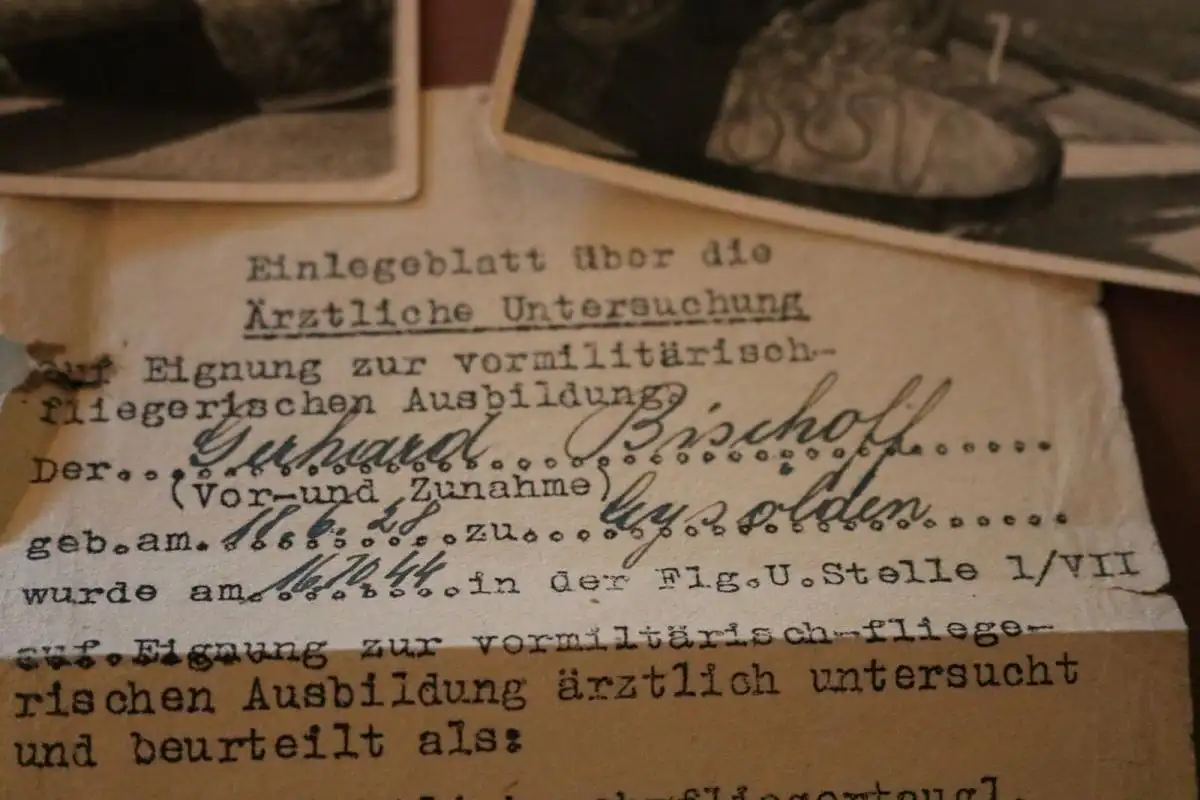 Einlegeblatt über die
Ärztliche Untersuchung
auf Eignung zur vormilitärisch-
fliegerischen Ausbildung.
Der... Gerhard Bischoff......
(Vor-und Zunahme)
geb.am. 18.6.28 .zu.... Gysölden......
wurde am. 16.10.44. in der Flg.U.Stelle 1/VII
auf.Eignung zur vormiltärisch-fliege-
rischen Ausbildung ärztlich untersucht
und beurteilt als: